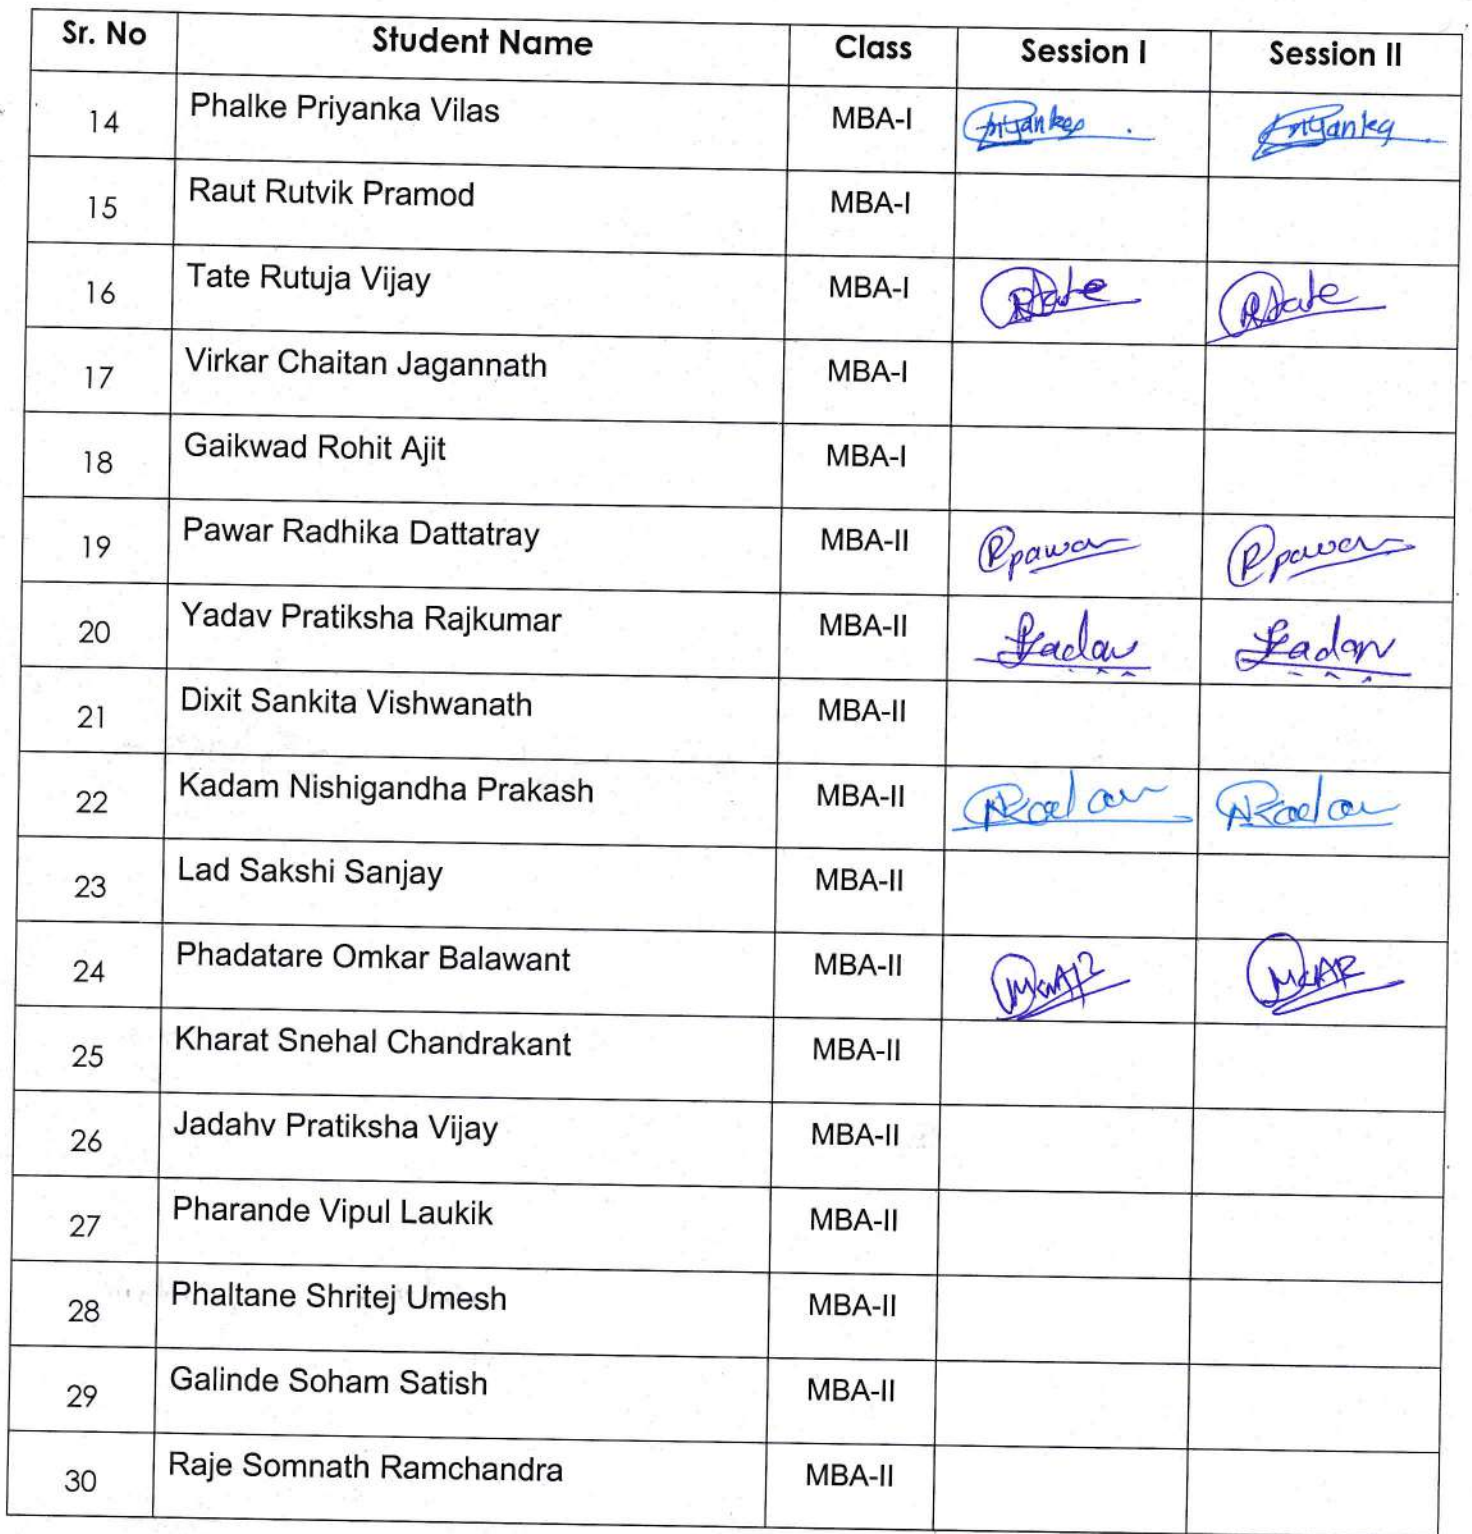 Sr. No Student Name Class Session I Session II
14 Phalke Priyanka Vilas MBA-I Priyanka Priyanka
15 Raut Rutvik Pramod MBA-I
16 Tate Rutuja Vijay MBA-I RTate RTate
17 Virkar Chaitan Jagannath MBA-I
18 Gaikwad Rohit Ajit MBA-I
19 Pawar Radhika Dattatray MBA-II Rpawar Rpawar
20 Yadav Pratiksha Rajkumar MBA-II
21 Dixit Sankita Vishwanath MBA-II
22 Kadam Nishigandha Prakash MBA-II
23 Lad Sakshi Sanjay MBA-II
24 Phadatare Omkar Balawant MBA-II
25 Kharat Snehal Chandrakant MBA-II
26 Jadahv Pratiksha Vijay MBA-II
27 Pharande Vipul Laukik MBA-II
28 Phaltane Shritej Umesh MBA-II
29 Galinde Soham Satish MBA-II
30 Raje Somnath Ramchandra MBA-II